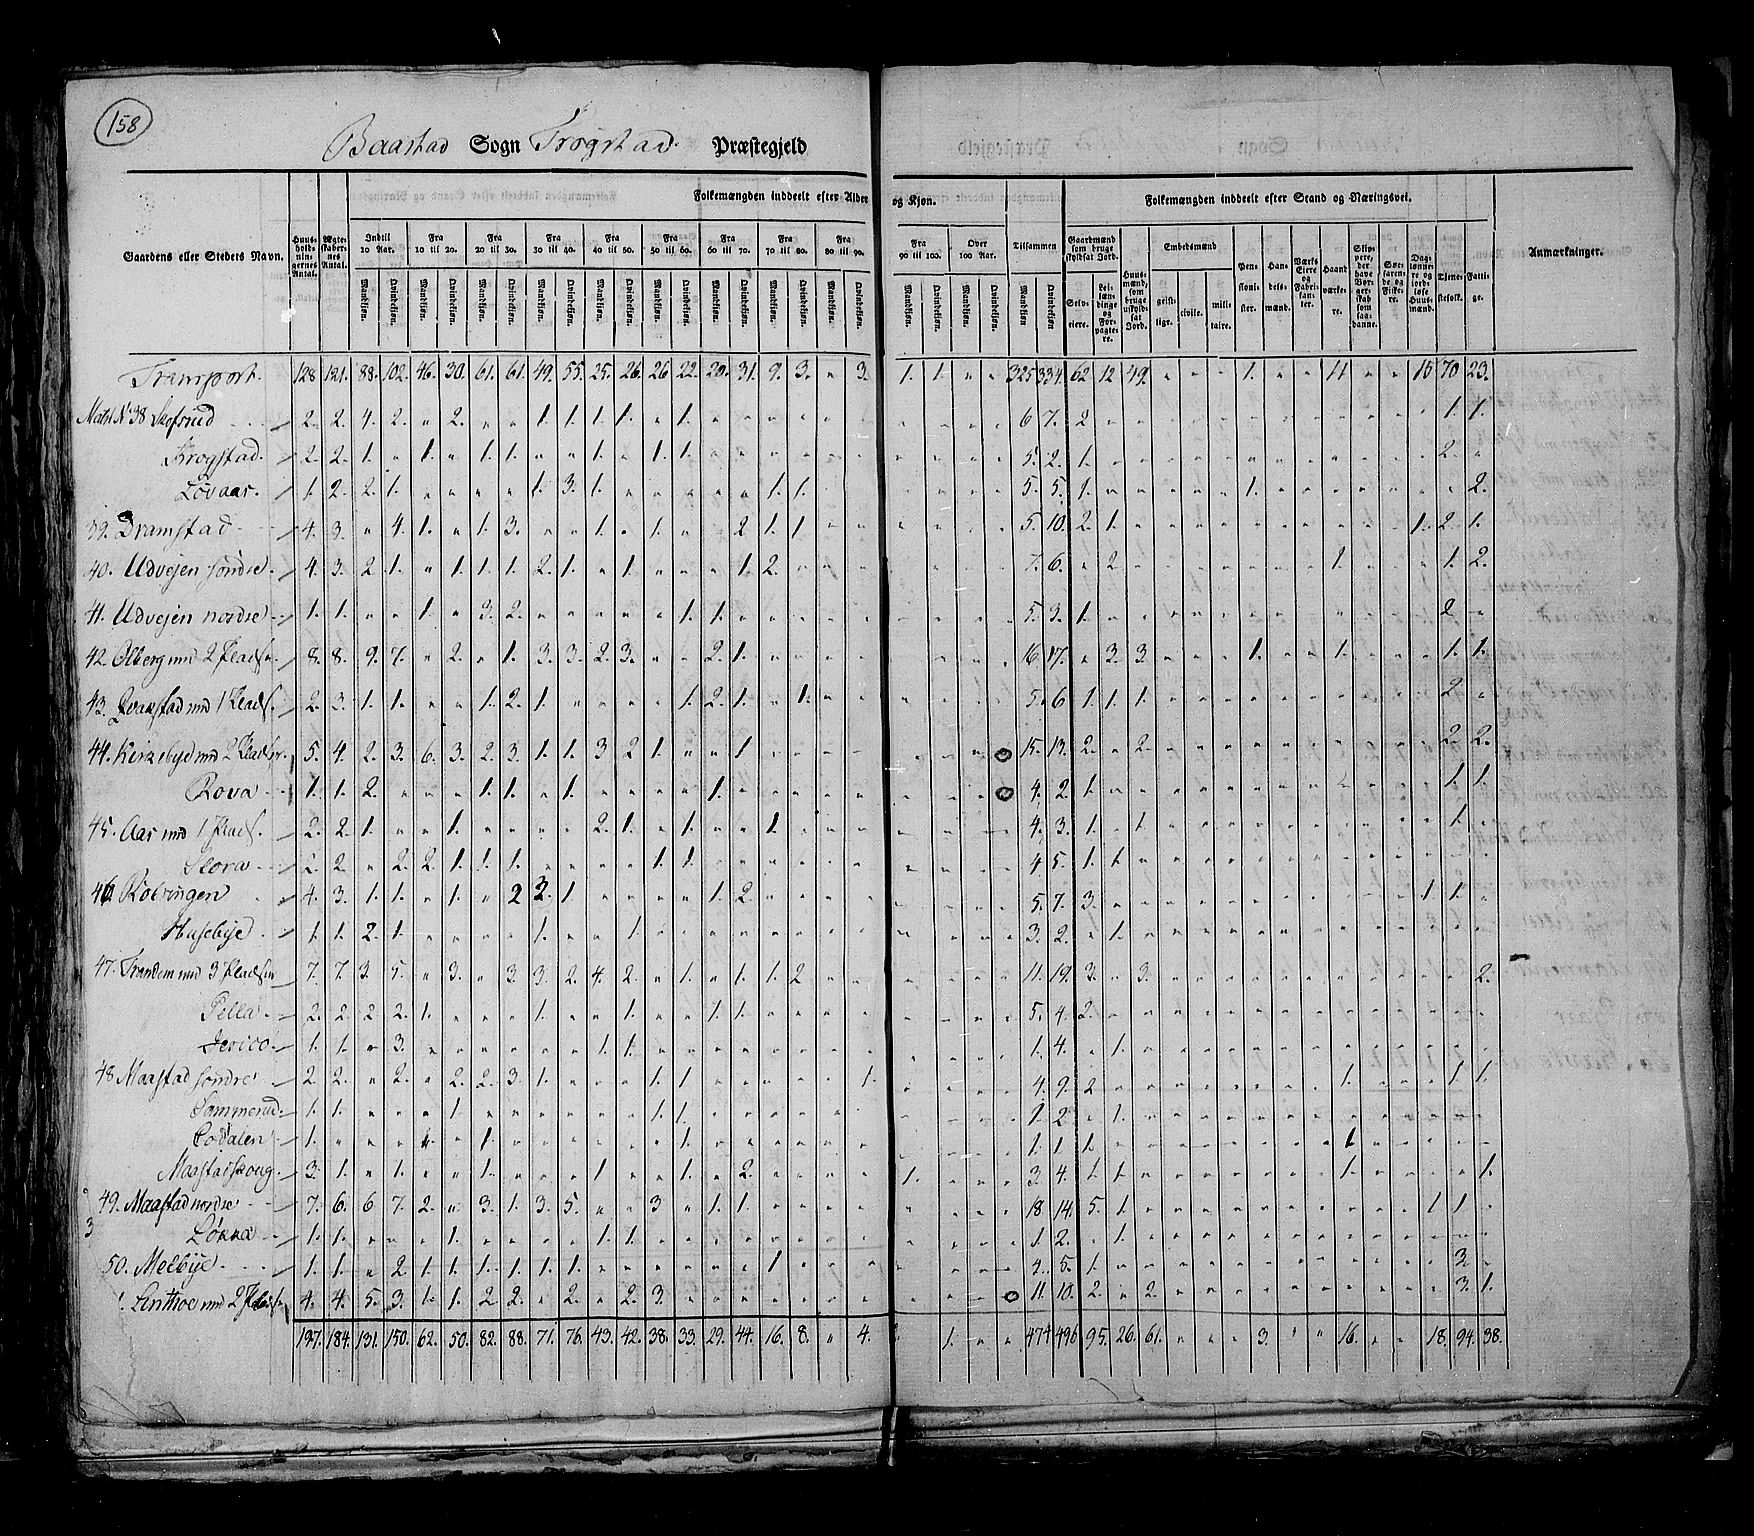 158
Baastad Sogn Trøgstad Præstegjeld
Folkemængden inddeelt efter Alder og Kjøn. Folkemængden inddeelt efter Stand og Næringsvei.
Gaardens eller Stedets Navn. Huusholdningernes Antal. Ægteskabernes Antal. Indtil 10 Aar. Fra 10 til 20. Fra 20 til 30. Fra 30 til 40. Fra 40 til 50. Fra 50 til 60. Fra 60 til 70. Fra 70 til 80. Fra 80 til 90. Fra 90 til 100. Over 100 Aar. Tilsammen Gaardmænd som bruge skyldsat Jord. Huusmænd, som bruge uskyldsat Jord. Embedsmænd Pensionister. Handelsmænd. Værks Eiere og Fabrikanter. Haandværkere. Skippere, der have Borgerskab som saadanne. Søefarende og Fiskere. Daglønnere og jordløse Huusmænd. Tjenestefolk. Fattige. Anmærkninger.
Mandkjøn. Qvindekjøn. Selveiere. Leilændinge og Forpagtere. geistlige. civile. militaire.
Transport. 128 121. 88. 102. 46. 30. 61. 61. 49. 55. 25. 26. 26 22. 20. 31. 9. 3. " 3. 1. 1. " " 325 334. 62. 12 49. " " " 1. " " 11. " " 15 70 23.
Matr. No 38 Skofsrud 2. 2. 4. 2. " 2. " " 1. 1. 1. 1. " 1. 6 7. 2 1. 1.
Krogstad. 2. 2. 1. " 1. " 1. 1. " 1. " 1. 1. 5. 2. 1. 2.
Lövaas. 1. 2. 2. 1. " " " " 1. 3. 1. 1. 1. 5. 5. 1. 1. 2.
39. Dramstad 4. 3. " 4. 1. " 1. 3. " " 1. " 1. " " 2 1. 1 5. 10. 2. 1. 1. 2. 1.
40. Udvejen söndre. 4. 3. 2. 1. " 1. 1. 1. 2. 1. " 1. " " " 1. 2. 7. 6. " 2 1 1. 2.
41. Udvejen nordre 1. 1. " " 1. " 3. 2. 1. 1. 5. 3. 1. 2
42. Olberg med 2 Pladse 8. 8. 9. 7. " 2. " 1. 3. 3. 2. 3. " " 2. 1. 16. 17. " 3. 3. 1. 1. 1. 1.
43. med 1 Plads. 2. 3. 1. 1. " " 1. 2. 1. 1. 2. 1. " 1. 5. 6 1. 1. 1. 2.
44. Kirkebye med 2 Pladser. 5. 4. 2. 3. 6. 3. 2. 3. 1. 1. 3 2 1. " " 1. 15. 13. 2. " 2. 2 2.
Rova 1. 1. 2. " " " 1. 1. " 1. 1. 4. 2. 1. 1. 1.
45. Aas med 1 Plads. 2. 2. 1. " " 1. 2. 1. " 1. 1. 4. 3. 1. " 1. 1.
Slora 2. 2. " 2. 2. 1. 1. 1. 1. 1. 4. 5. 1. 1.
46. 4. 3. 1. 1. " 1. " 2 2. 1. 1. 2. 5. 7. 3. 1. 1.
Husebye. 1. 1. 2. 1. 1. " " 1. 3. 2. " 1.
47. Trandem med 3 Pladser 7. 7. 3. 5. " 3. " 3. 3. 2. 4. 2. " 1. " 1. 1. 2 11. 19. 3. " 3. 2.
Pella. 2. 2. 2 2. 1. 1. " " 1. " " 1. 1. 5. 4. 2.
Jerico. 1. 1. " 3. 1. 1. 1. 4. " 1.
48. Maastad söndre 2. 2. " 2. " 2. 2. 3. 1. 1. 1. 1. 4. 9. 2 1. 1. 1.
Sammerud. 1. 1. 1. 1. 1. 1. 2. 1.
1. 1. 1. 1. 1. 1. 1
Maastadskoug. 3. 1. " 1. " " 1. " " " 1. " " 1. " 2. 1. 3. 4. 1. 1. 1. 1.
49. Maastad nordre 7. 6. 6 7. 2. " 3. 1. 3. 5. " " 3 " 1. 1. 18. 14. 5. 1. 1. 1.
1. 1. 1. 1. 1. 1. 2. 1.
50. Melbye 1. 1. " 2. 1. 1. 1. 1. 1. 1. 1 4. 5. 1. 3.
med 2 Pladse 4. 4. 5. 3. 1. 1. 2 2. " 2. " 2. 3. 11. 10. 2. " 2. 3. 1.
197. 184. 131. 150. 62. 50. 82. 88. 71. 76. 43. 42. 38. 33. 29. 44. 16. 8. " 4. 1. 474 496. 95. 26. 61. 3. 16. 18. 94. 38.